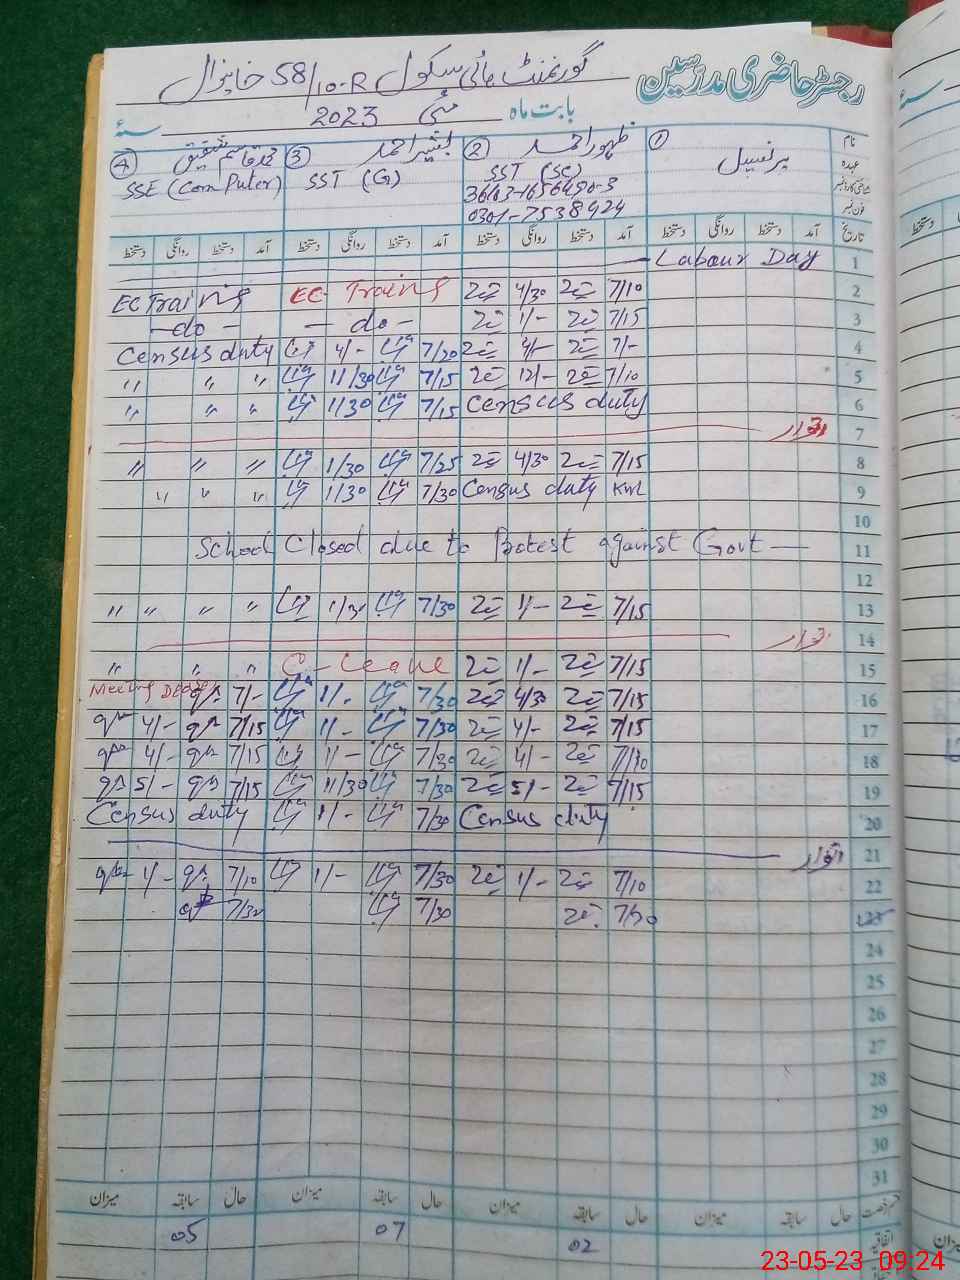 رجسٹر حاضری مدرسین
گورنمنٹ ہائی سکول 58/10-R خانیوال
بابت ماہ مئی 2023 سنہ
نام ① پرنسپل ② ظہور احمد ③ بشیر احمد ④ محمد قاسم شفیق
عہدہ SST (SC) SST (G) SSE (Computer)
شناختی کارڈ نمبر
فون نمبر 0301-7538924
تاریخ آمد دستخط روانگی دستخط آمد دستخط روانگی دستخط آمد دستخط روانگی دستخط آمد دستخط روانگی دستخط
1 Labour Day
2 7/10 4/30 EC Training EC Training
3 7/15 1/- — do — — do —
4 7/- 4/- 7/20 4/- Census duty
5 7/10 12/- 7/15 11/30 " " "
6 Census duty 7/15 1/30 " " "
7 اتوار
8 7/15 4/30 7/25 1/30 " " "
9 Census duty KWL 7/30 1/30 " " "
10
11 School Closed due to Protest against Govt —
12
13 7/15 1/- 7/30 1/30 " " " "
14 اتوار
15 7/15 1/- C-Leave " " "
16 7/15 4/30 7/30 1/- 7/- Meeting
17 7/15 4/- 7/30 1/- 7/15 4/-
18 7/10 4/- 7/30 1/- 7/15 4/-
19 7/15 5/- 7/30 11/30 7/15 5/-
20 Census duty 7/30 1/- Census duty
21 اتوار
22 7/10 1/- 7/30 1/- 7/10 1/-
23 7/30 7/30 7/30
24
25
26
27
28
29
30
31
قسم رخصت حال سابقہ میزان حال سابقہ میزان حال سابقہ میزان حال سابقہ میزان
اتفاقیہ 02 07 05
23-05-23 09:24